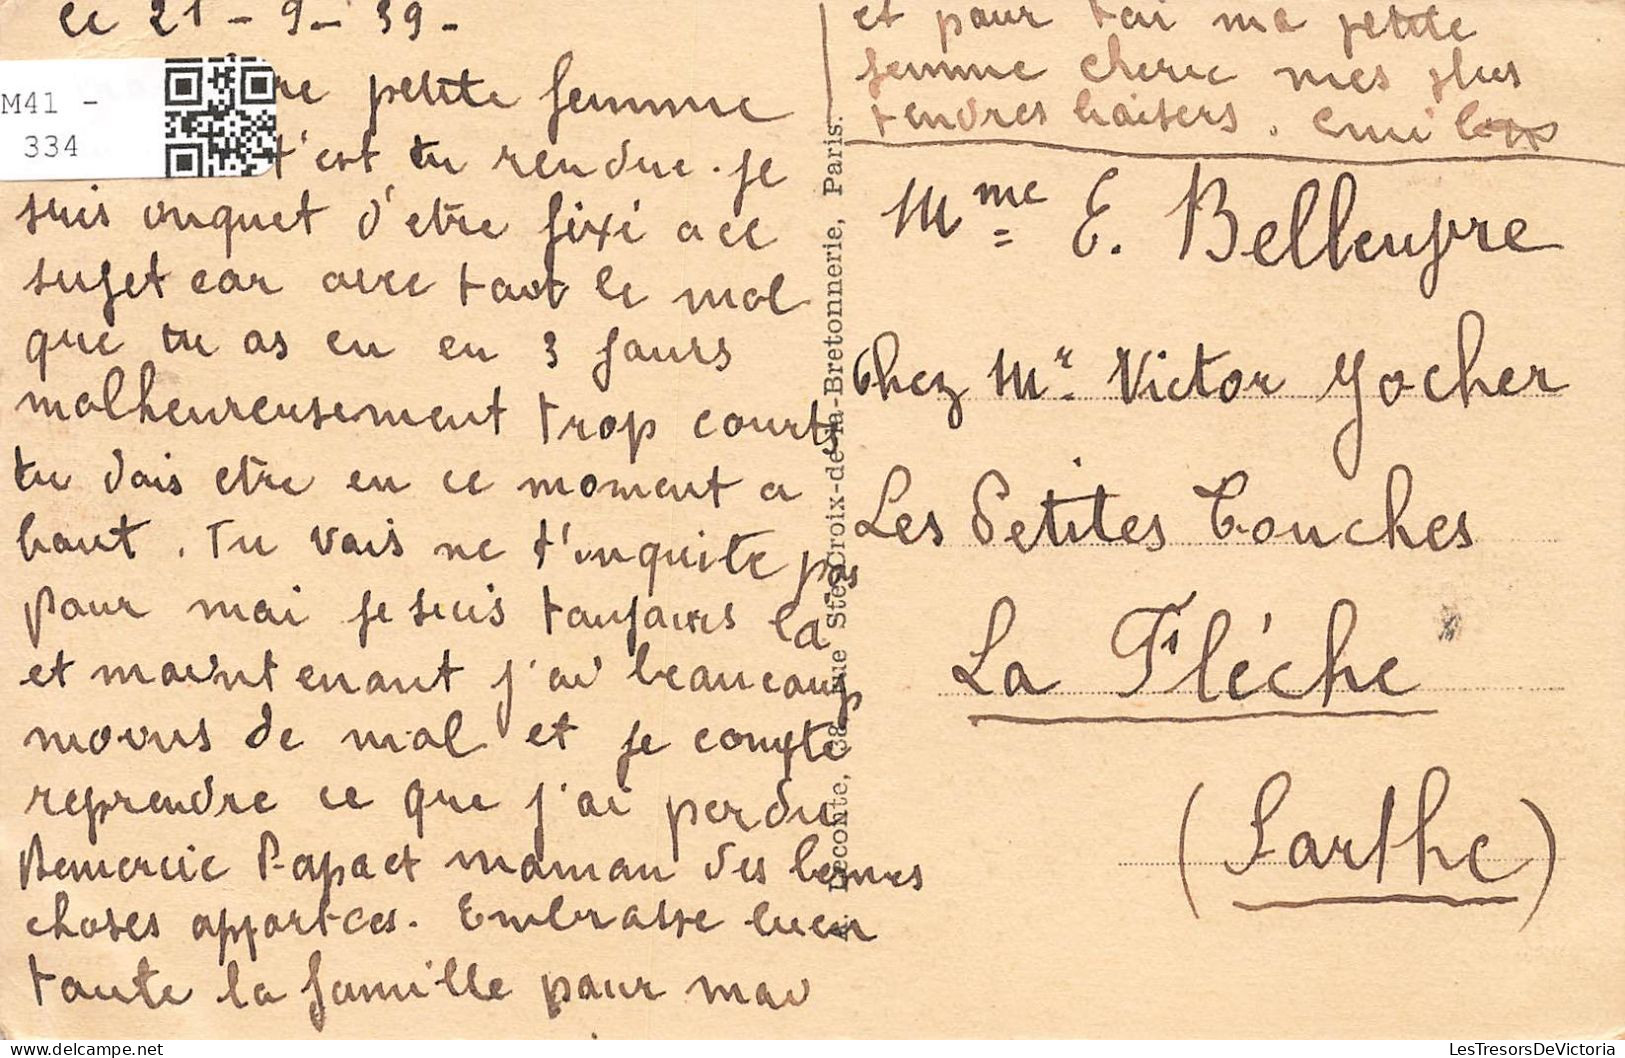 le 21 - 9 - 39 -
M41 -
334
petite femme
t'est tu rendue. Je
suis inquiet d'etre fixé a ce
sujet car avec tout le mal
que tu as eu en 3 jours
malheureusement trop courts
tu dois etre en ce moment a
haut. Tu vois ne t'inquite pas
pour moi je suis toujours la
et maintenant j'ai beaucoup
moins de mal et je compte
reprendre ce que j'ai perdu
Remercie Papa et maman des bonnes
choses apportées. Embrasse bien
toute la famille pour moi
et pour toi ma petite
femme cherie mes plus
tendres baisers. Emile
A. Leconte, 38, rue Ste-Croix-de-la-Bretonnerie, Paris.
Mme E. Belleuvre
Chez Mr. Victor Yocher
Les Petites Touches
La Fléche
(Sarthe)
LesTresorsDeVictoria